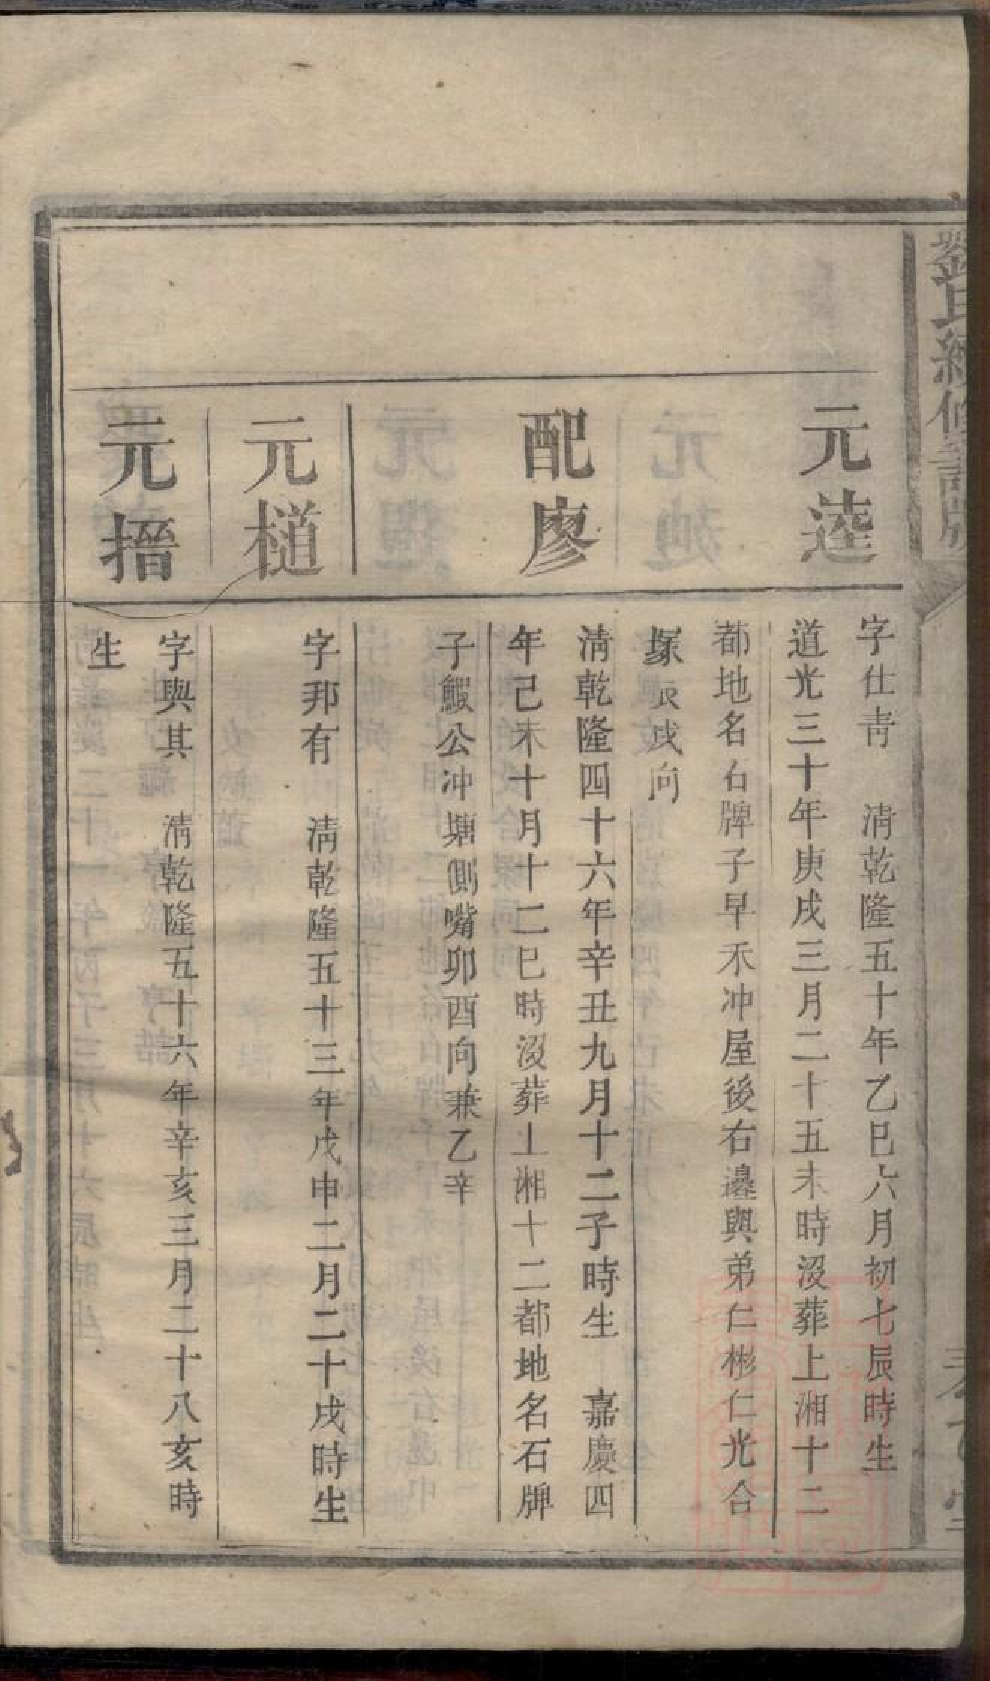 劉氏續修譜牒
元薘
字仕靑　淸乾隆五十年乙巳六月初七辰時生
道光三十年庚戌三月二十五未時沒葬上湘十二
都地名石牌子早禾冲屋後右邊與弟仁彬仁光合
塚辰戌向
配廖
淸乾隆四十六年辛丑九月十二子時生　嘉慶四
年己未十月十二巳時沒葬上湘十二都地名石牌
子鰕公冲塘側嘴卯酉向兼乙辛
元檤
字邦有　淸乾隆五十三年戊申二月二十戌時生
元搢
字與其　淸乾隆五十六年辛亥三月二十八亥時
生